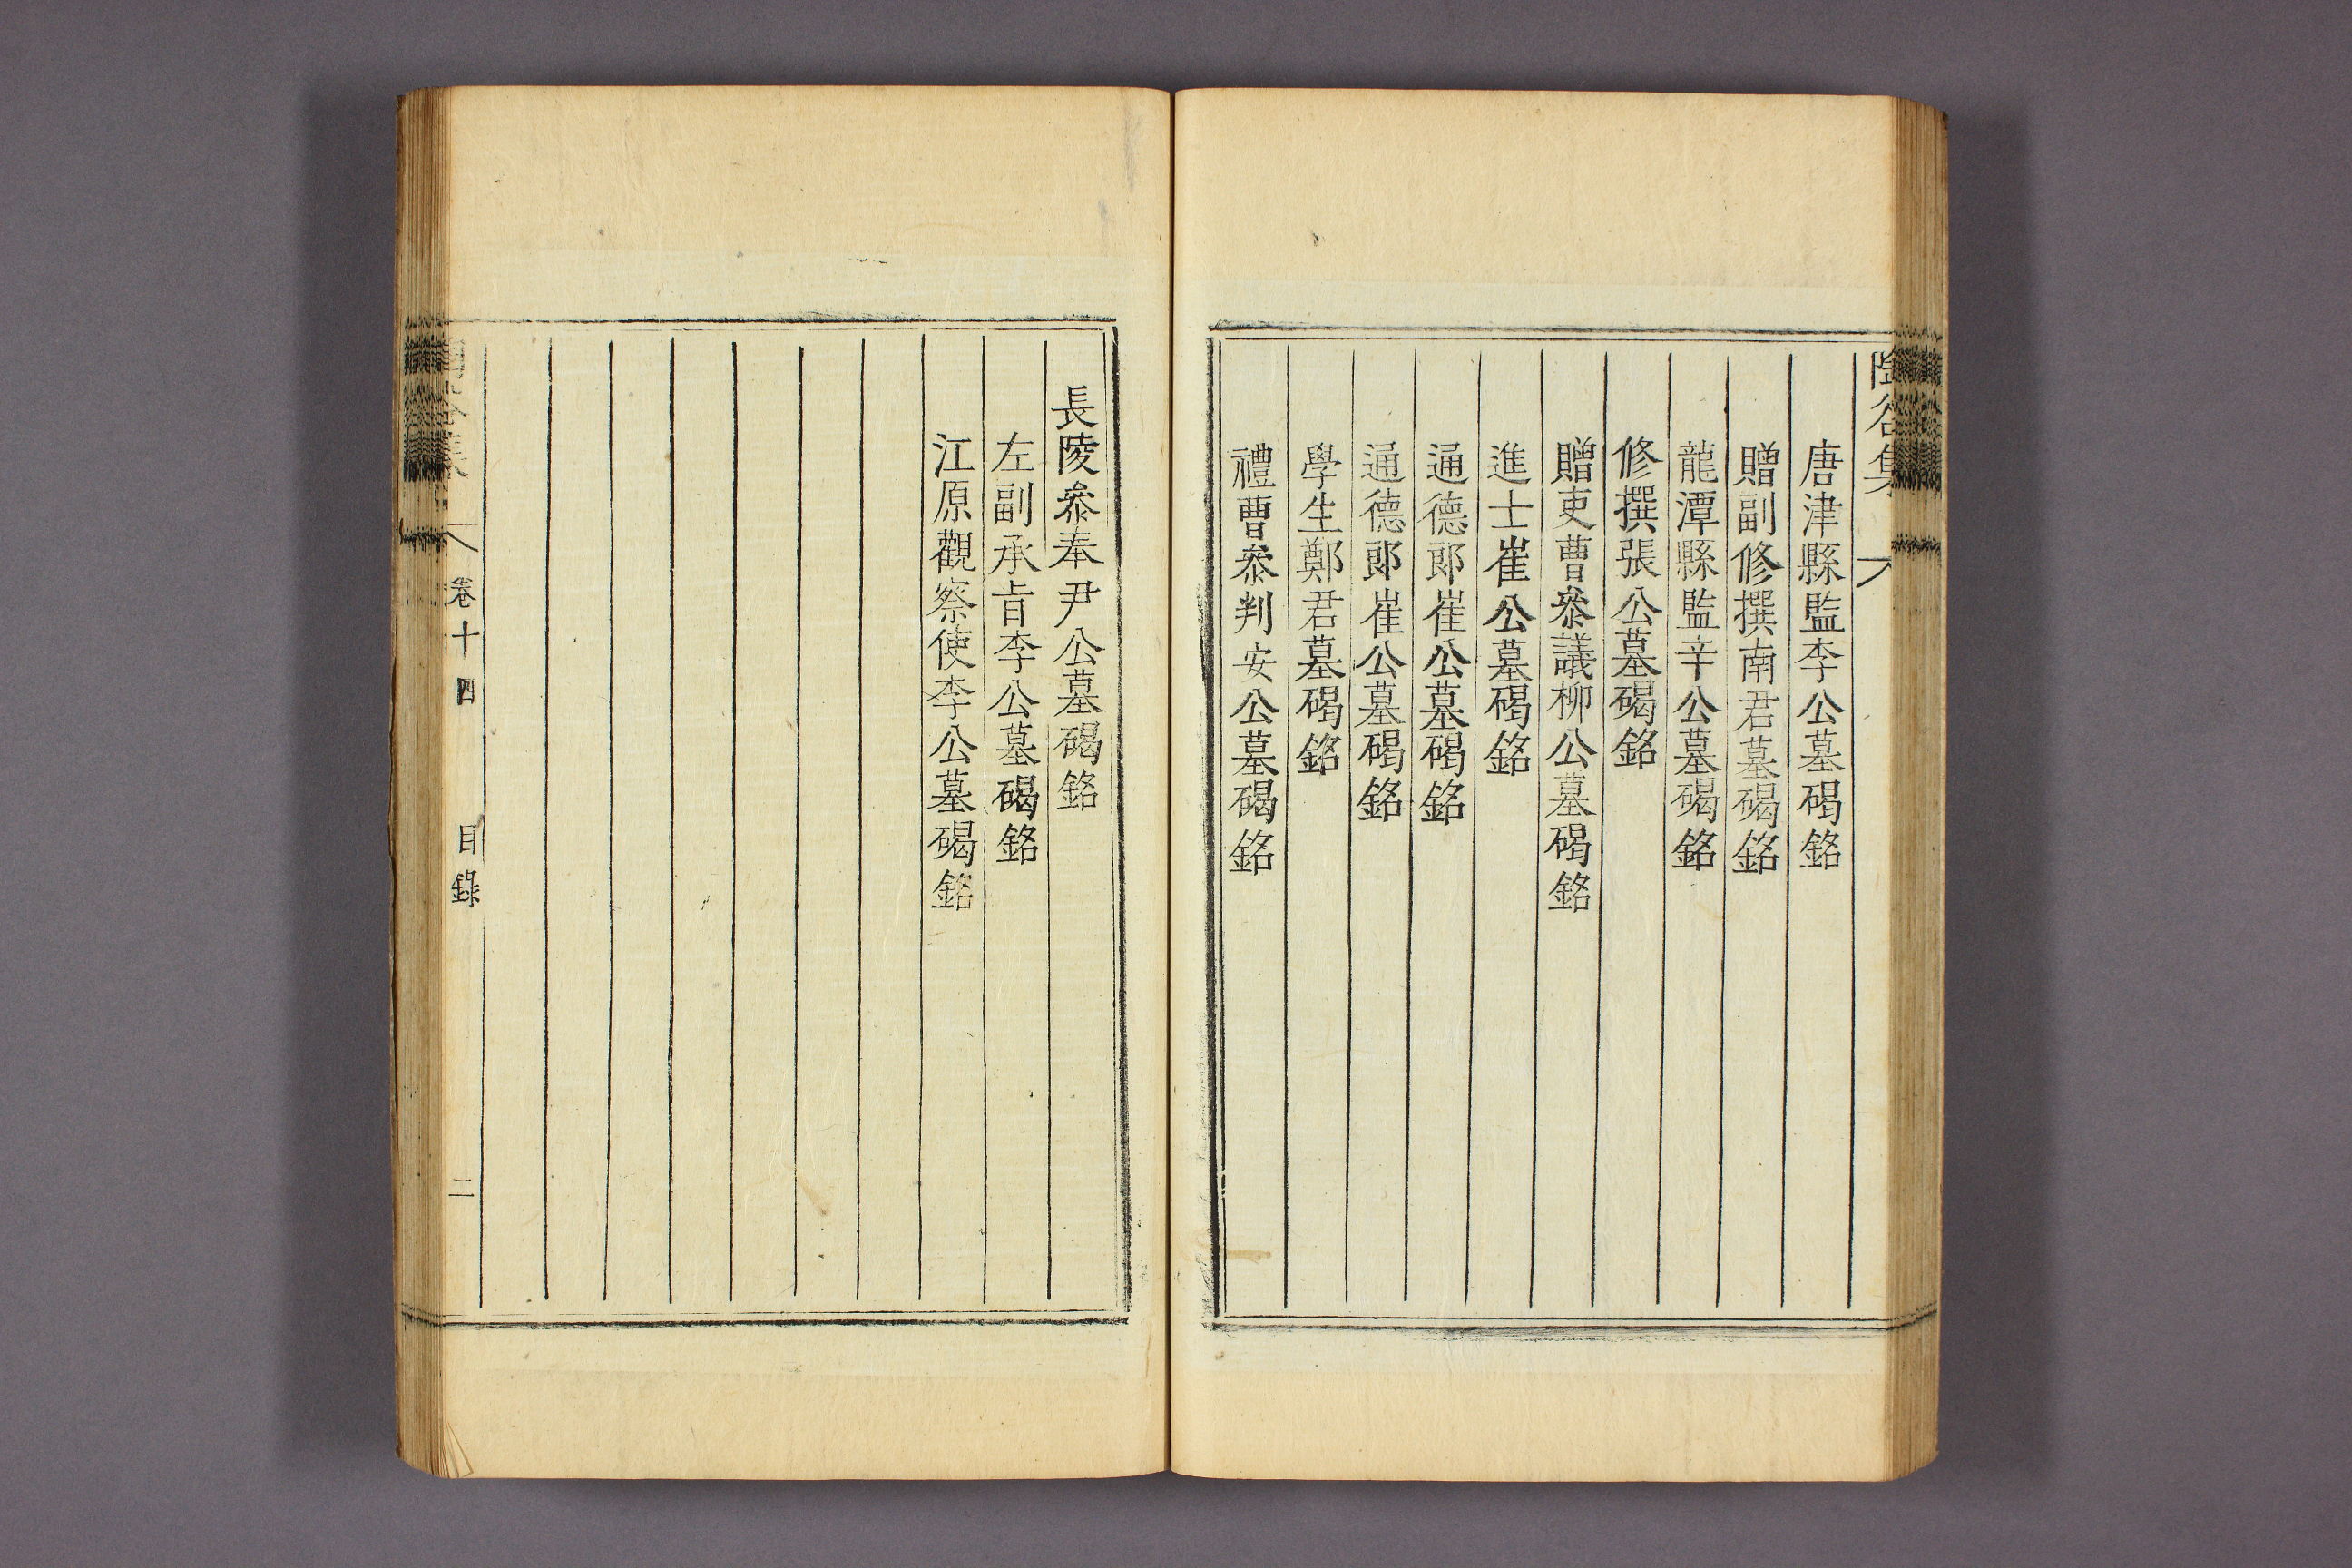 陶谷集
唐津縣監李公墓碣銘
贈副修撰南君墓碣銘
龍潭縣監辛公墓碣銘
修撰張公墓碣銘
贈吏曹叅議柳公墓碣銘
進士崔公墓碣銘
通德郞崔公墓碣銘
通德郞崔公墓碣銘
學生鄭君墓碣銘
禮曹叅判安公墓碣銘
長陵叅奉尹公墓碣銘
左副承旨李公墓碣銘
江原觀察使李公墓碣銘
卷十四 目錄 二